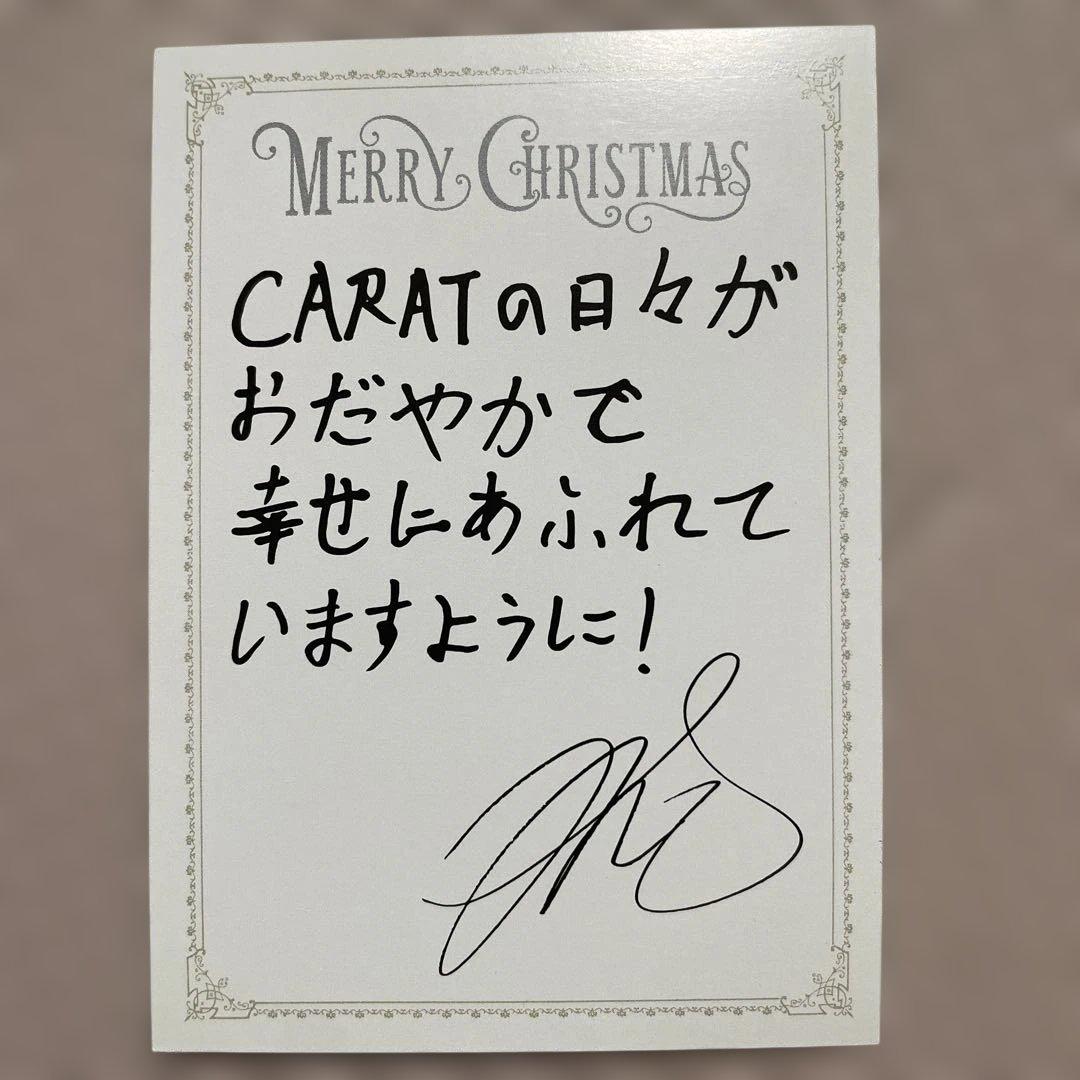 MERRY CHRISTMAS
CARATの日々が
おだやかで
幸せにあふれて
いますように!